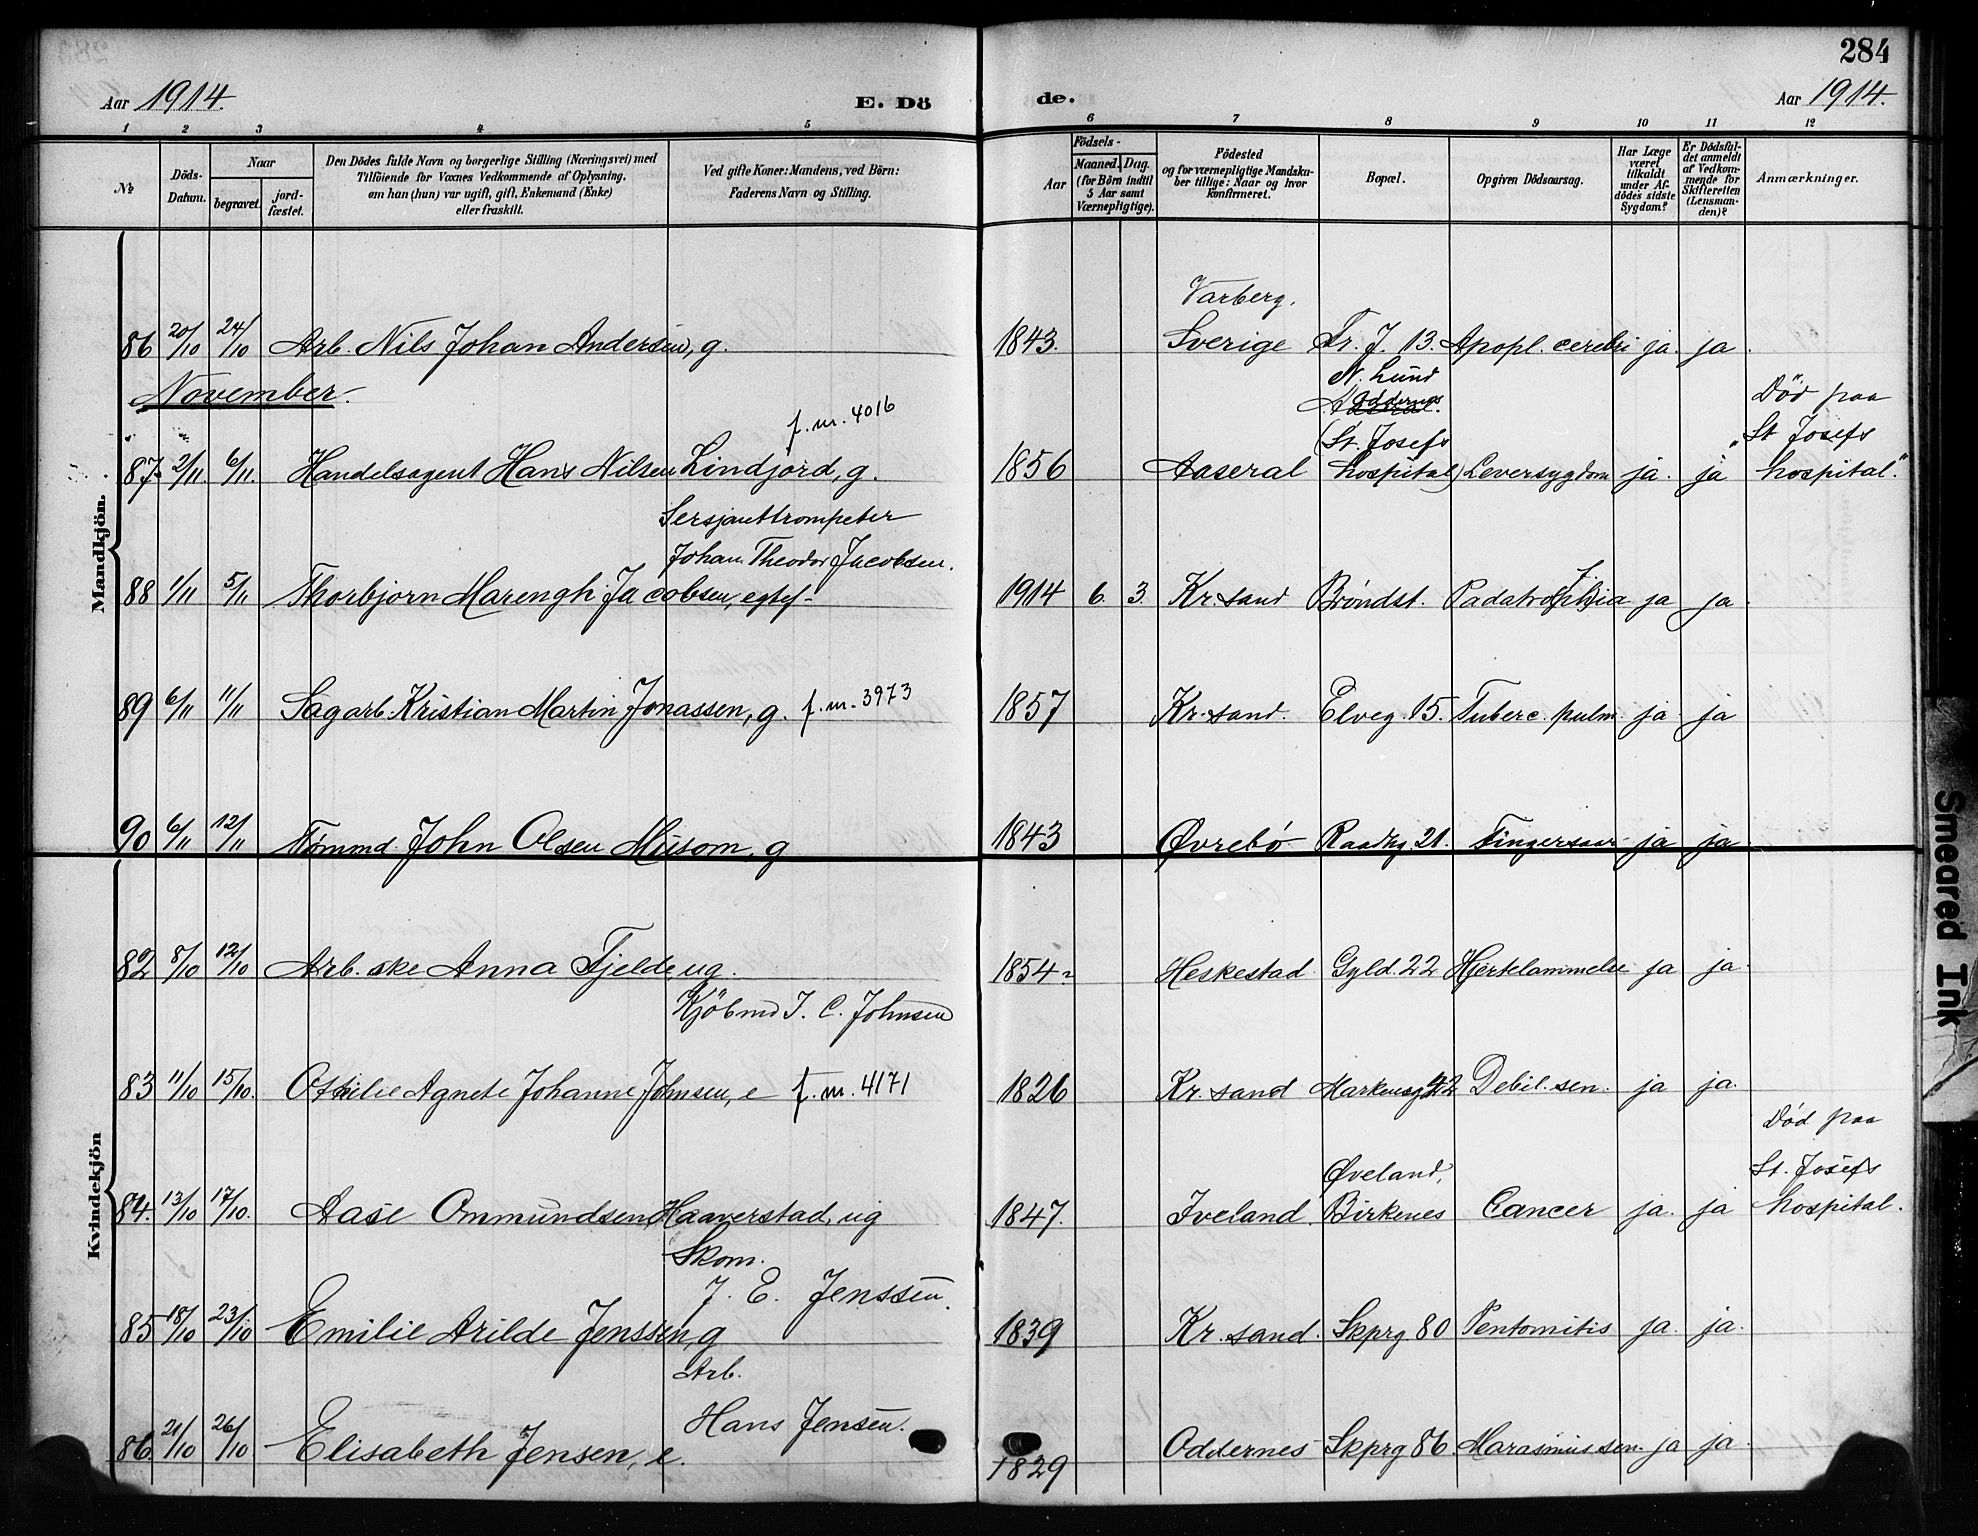 284
Aar 1914.
E. Dö
de.
Aar 1914.
1 2 3 4 5 6 7 8 9 10 11 12
№
Döds-
Datum.
Naar
begravet.
jord-
fæstet.
Den Dödes fulde Navn og borgerlige Stilling (Næringsvei) med
Tilföiende for Voxnes Vedkommende af Oplysning,
om han (hun) var ugift, gift, Enkemand (Enke)
eller fraskilt.
Ved gifte Koner: Mandens, ved Börn:
Faderens Navn og Stilling.
Födsels-
Aar
Maaned.
Dag.
(for Börn indtil
5 Aar samt
Værnepligtige).
Födested
og for værnepligtige Mandska-
ber tillige: Naar og hvor
konfirmeret.
Bopæl.
Opgiven Dödsaarsag.
Har Læge
været
tilkaldt
under Af-
dödes sidste
Sygdom?
Er Dödsfal-
det anmeldt
af Vedkom-
mende for
Skifteretten
(Lensman-
den)?
Anmærkninger.
Mandkjön.
Varberg,
86 20/10 24/10 Arb. Nils Johan Andersen, g. 1843. Sverige Tr. J. 13. Apopl. cerebri ja. ja.
November.
N. Lund
Oddernes
(St. Josefs
Död paa
"St Josefs
f. m. 4016
87. 2/11. 6/11. Handelsagent Hans Nilsen Lindjord, g. 1856 Aaseral hospital) Leversygdom ja. ja hospital."
Sersjanttrompeter
Johan Theodor Jacobsen.
88 1/11 5/11 Thorbjørn Marengh Jacobsen, egtef- 1914 6. 3. Kr. sand Brøndst. Padatrophia ja ja.
89 6/11 11/11 Sagarb. Kristian Martin Jonassen, g. f. m. 3973 1857 Kr. sand. Elveg. 15. Tuberc. pulm. ja ja
90 6/11 12/11 Tømmd. John Olsen Musom, g 1843 Øvrebö Raadhg 21. Fingersaar ja ja
Kvindekjön
82 8/10 12/10 Arb. ske Anna Fjelde, ug. 1854 Heskestad Gyld. 22 Hjertelammelse ja ja.
Kjöbmd J. C. Johnsen
83 11/10 15/10. Ottilie Agnete Johanne Johnsen, e f. m. 4171 1826 Kr. sand Markensg 42 Debil. sen. ja ja.
Död paa
St. Josefs
Øveland,
84. 13/10 17/10. Aase Ommundsen Haaverstad, ug 1847. Iveland. Birkenes Cancer ja. ja hospital.
Skom.
J. E. Jenssen.
85 18/10 23/10 Emilie Arilde Jenssen, g 1839 Kr. sand. Skprg 80 Pentomitis ja. ja.
Arb.
Hans Jensen.
86. 21/10 26/10 Elisabeth Jensen, e. 1829 Oddernes Skprg 86. Marasmus sen. ja ja.
Smeared Ink